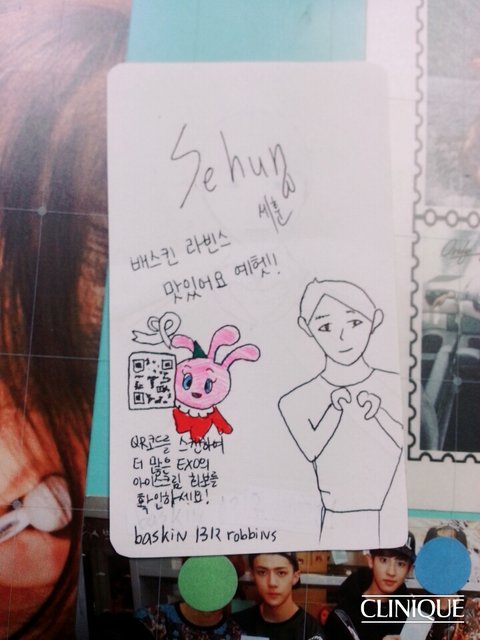 Sehun
세훈
배스킨 라빈스
맛있어요 예헷!!
QR코드를 스캔하여
더 많은 EXO의
아이스크림 화보를
확인하세요!
baskin BR robbins
CLINIQUE